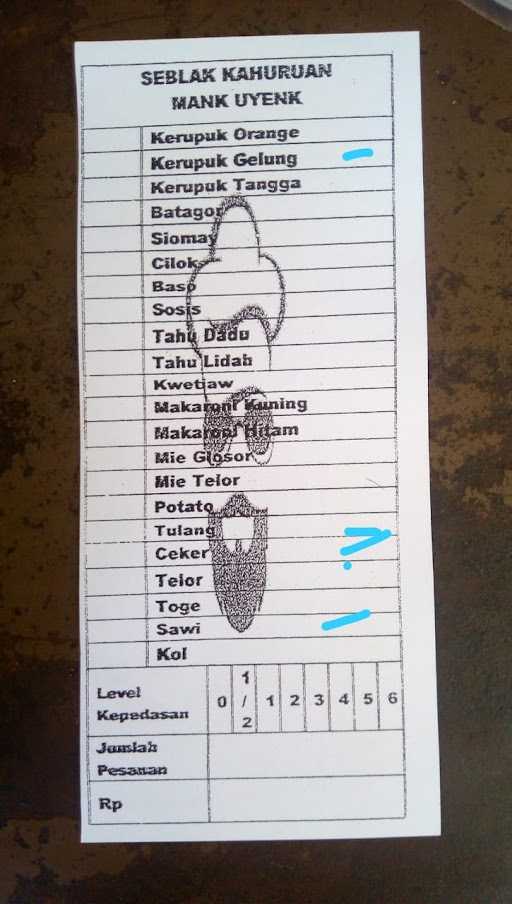 SEBLAK KAHURUAN
MANK UYENK
Kerupuk Orange
Kerupuk Gelung
Kerupuk Tangga
Batagor
Siomay
Cilok
Baso
Sosis
Tahu Dadu
Tahu Lidah
Kwetiaw
Makaroni Kuning
Makaroni Hitam
Mie Glosor
Mie Telor
Potato
Tulang
Ceker
Telor
Toge
Sawi
Kol
Level Kepedasan 0 1/2 1 2 3 4 5 6
Jumlah
Pesanan
Rp